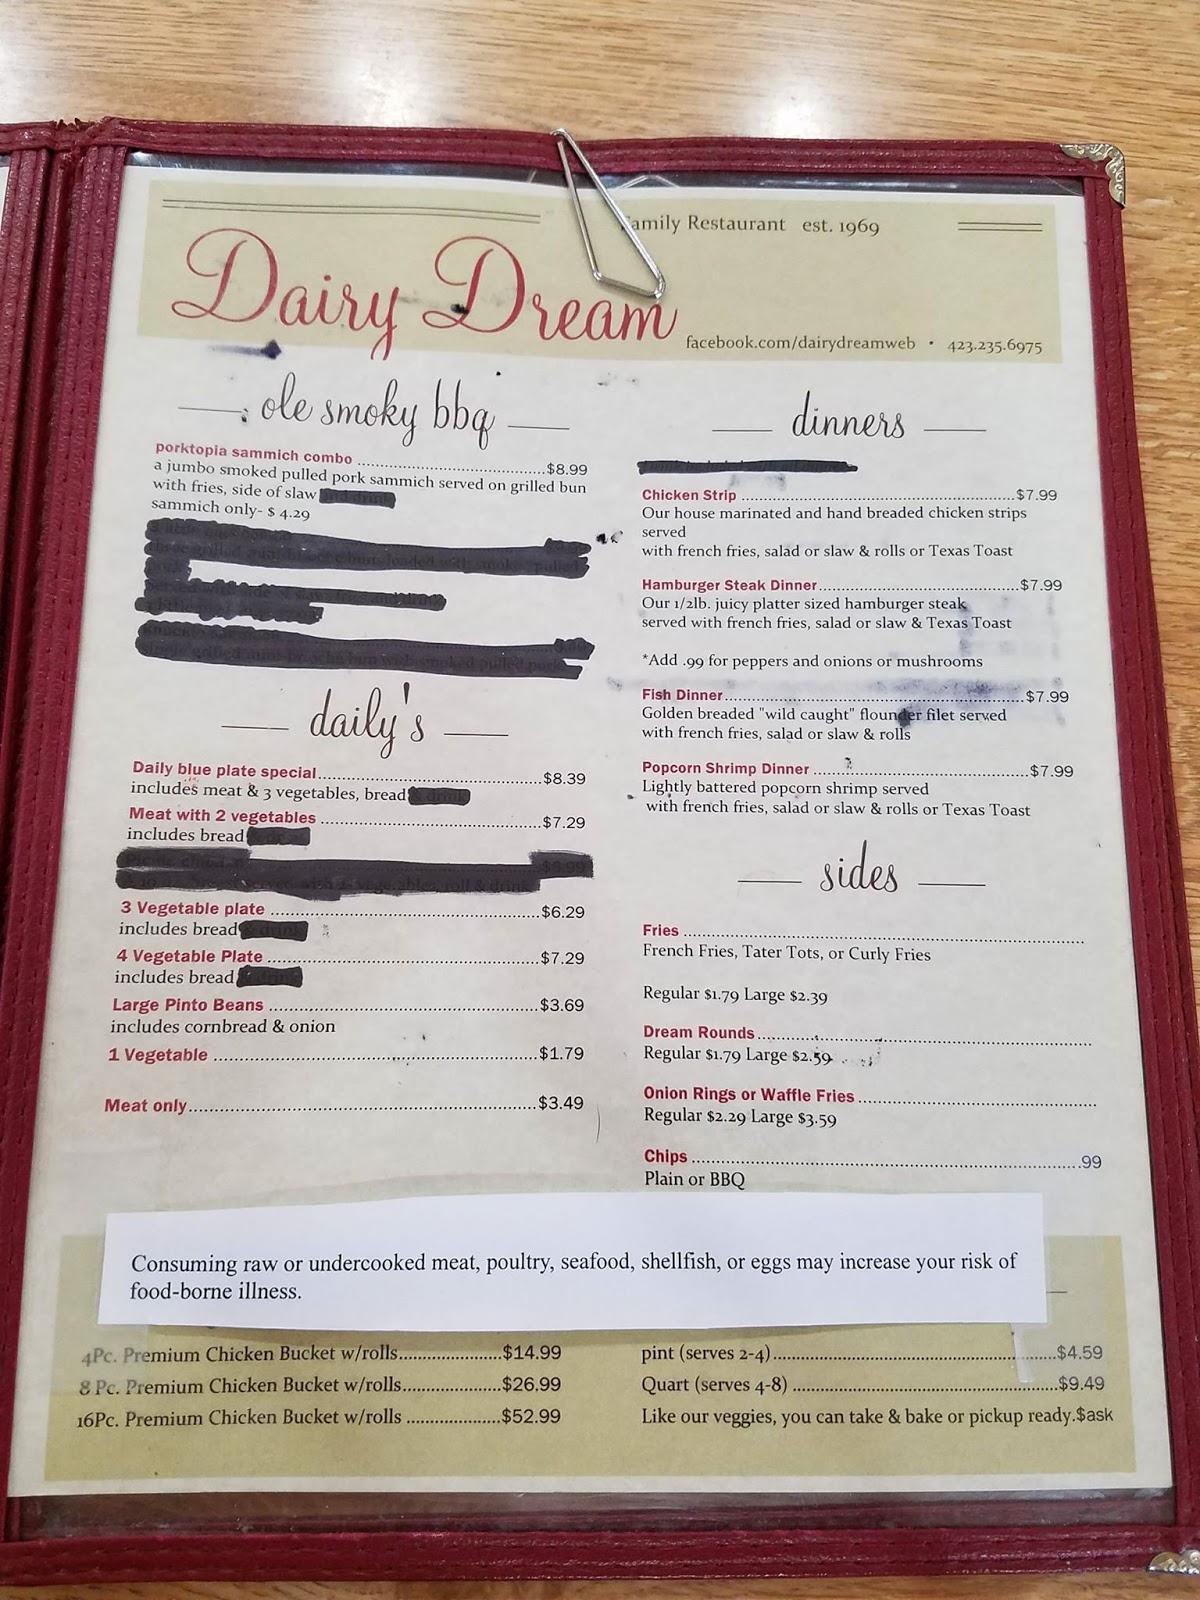 Family Restaurant est. 1969
Dairy Dream
facebook.com/dairydreamweb • 423.235.6975
ole smoky bbq
porktopia sammich combo ........ $8.99
a jumbo smoked pulled pork sammich served on grilled bun
with fries, side of slaw
sammich only- $ 4.29
daily's
Daily blue plate special........ $8.39
includes meat & 3 vegetables, bread
Meat with 2 vegetables ........ $7.29
includes bread
3 Vegetable plate ........ $6.29
includes bread
4 Vegetable Plate ........ $7.29
includes bread
Large Pinto Beans ........ $3.69
includes cornbread & onion
1 Vegetable ........ $1.79
Meat only........ $3.49
dinners
Chicken Strip ........ $7.99
Our house marinated and hand breaded chicken strips
served
with french fries, salad or slaw & rolls or Texas Toast
Hamburger Steak Dinner........ $7.99
Our 1/2lb. juicy platter sized hamburger steak
served with french fries, salad or slaw & Texas Toast
*Add .99 for peppers and onions or mushrooms
Fish Dinner........ $7.99
Golden breaded "wild caught" flounder filet served
with french fries, salad or slaw & rolls
Popcorn Shrimp Dinner ........ $7.99
Lightly battered popcorn shrimp served
with french fries, salad or slaw & rolls or Texas Toast
sides
Fries ........
French Fries, Tater Tots, or Curly Fries
Regular $1.79 Large $2.39
Dream Rounds........
Regular $1.79 Large $2.59
Onion Rings or Waffle Fries ........
Regular $2.29 Large $3.59
Chips ........ .99
Plain or BBQ
Consuming raw or undercooked meat, poultry, seafood, shellfish, or eggs may increase your risk of
food-borne illness.
4Pc. Premium Chicken Bucket w/rolls........ $14.99
8 Pc. Premium Chicken Bucket w/rolls........ $26.99
16Pc. Premium Chicken Bucket w/rolls ........ $52.99
pint (serves 2-4)........ $4.59
Quart (serves 4-8) ........ $9.49
Like our veggies, you can take & bake or pickup ready.$ask